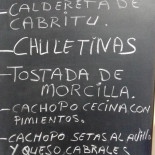 CALDERETA DE
CABRITU.
- CHULETINAS
- TOSTADA DE
MORCILLA.
- CACHOPO CECINA CON
PIMIENTOS.
- CACHOPO SETAS AL AJILLO
Y QUESO CABRALES